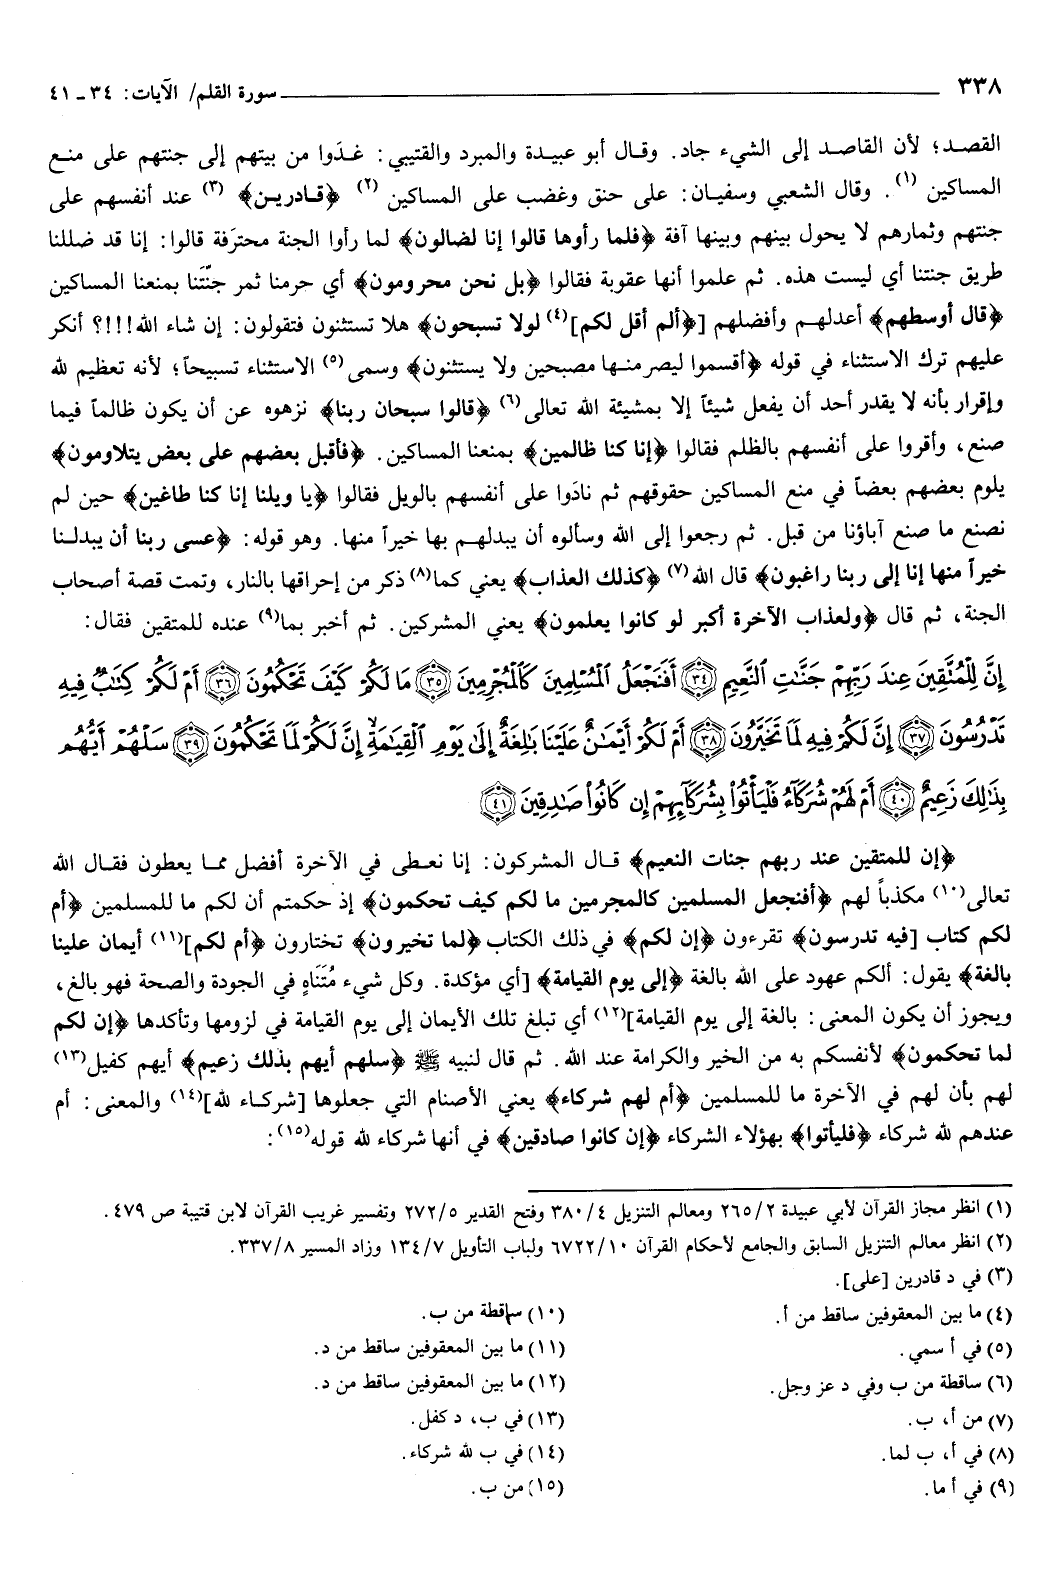 ٣٣٨ سورة القلم/ الآيات: ٣٤ - ٤١
القصـد؛ لأن القاصـد إلى الشيء جاد. وقـال أبو عبيـدة والمبرد والقتيبي: غـدَوا من بيتهم إلى جنتهم على منـع
المساكين (١). وقال الشعبي وسفيـان: على حنق وغضب على المساكين (٢) ﴿قـادريـن﴾ (٣) عند أنفسهم على
جنتهم وثمارهم لا يحول بينهم وبينها آفة ﴿فلما رأوها قالوا إنا لضالون﴾ لما رأوا الجنة محترَقة قالوا: إنا قد ضللنا
طريق جنتنا أي ليست هذه. ثم علموا أنها عقوبة فقالوا ﴿بل نحن محرومون﴾ أي حرمنا ثمر جنّتَنا بمنعنا المساكين
﴿قال أوسطهم﴾ أعدلهـم وأفضلهم [﴿ألم أقل لكم](٤) لولا تسبحون﴾ هلا تستثنون فتقولون: إن شاء الله!!!؟ أنكر
عليهم ترك الاستثناء في قوله ﴿أقسموا ليصرمنـها مصبحين ولا يستثنون﴾ وسمى(٥) الاستثناء تسبيحاً؛ لأنه تعظيم لله
وإقرار بأنه لا يقدر أحد أن يفعل شيئاً إلا بمشيئة الله تعالى(٦) ﴿قالوا سبحان ربنا﴾ نزهوه عن أن يكون ظالماً فيما
صنع، وأقروا على أنفسهم بالظلم فقالوا ﴿إنا كنا ظالمين﴾ بمنعنا المساكين. ﴿فأقبل بعضهم على بعض يتلاومون﴾
يلوم بعضهم بعضاً في منع المساكين حقوقهم ثم نادَوا على أنفسهم بالويل فقالوا ﴿يا ويلنا إنا كنا طاغين﴾ حين لم
نصنع ما صنع آباؤنا من قبل. ثم رجعوا إلى الله وسألوه أن يبدلهـم بها خيراً منها. وهو قوله: ﴿عسى ربنا أن يبدلـنا
خيراً منها إنا إلى ربنا راغبون﴾ قال الله(٧) ﴿كذلك العذاب﴾ يعني كما(٨) ذكر من إحراقها بالنار، وتمت قصة أصحاب
الجنة، ثم قال ﴿ولعذاب الآخرة أكبر لو كانوا يعلمون﴾ يعني المشركين. ثم أخبر بما(٩) عنده للمتقين فقال:
إِنَّ لِلْمُتَّقِينَ عِندَ رَبِّهِمْ جَنَّٰتِ ٱلنَّعِيمِ ٣٤ أَفَنَجْعَلُ ٱلْمُسْلِمِينَ كَٱلْمُجْرِمِينَ ٣٥ مَا لَكُمْ كَيْفَ تَحْكُمُونَ ٣٦ أَمْ لَكُمْ كِتَٰبٌ فِيهِ
تَدْرُسُونَ ٣٧ إِنَّ لَكُمْ فِيهِ لَمَا تَخَيَّرُونَ ٣٨ أَمْ لَكُمْ أَيْمَٰنٌ عَلَيْنَا بَٰلِغَةٌ إِلَىٰ يَوْمِ ٱلْقِيَٰمَةِ إِنَّ لَكُمْ لَمَا تَحْكُمُونَ ٣٩ سَلْهُمْ أَيُّهُم
بِذَٰلِكَ زَعِيمٌ ٤٠ أَمْ لَهُمْ شُرَكَآءُ فَلْيَأْتُوا۟ بِشُرَكَآئِهِمْ إِن كَانُوا۟ صَٰدِقِينَ ٤١
﴿إن للمتقين عند ربهم جنات النعيم﴾ قـال المشركون: إنا نعـطى في الآخرة أفضل ممـا يعطون فقـال الله
تعالى(١٠) مكذباً لهم ﴿أفنجعل المسلمين كالمجرمين ما لكم كيف تحكمون﴾ إذ حكمتم أن لكم ما للمسلمين ﴿أم
لكم كتاب [فيه تدرسون﴾ تقرءون ﴿إن لكم﴾ في ذلك الكتاب ﴿لما تخيرون﴾ تختارون ﴿أم لكم](١١) أيمان علينا
بالغة﴾ يقول: ألكم عهود على الله بالغة ﴿إلى يوم القيامة﴾ [أي مؤكدة. وكل شيء مُتَنَاهٍ في الجودة والصحة فهو بالغ،
ويجوز أن يكون المعنى: بالغة إلى يوم القيامة](١٢) أي تبلغ تلك الأيمان إلى يوم القيامة في لزومها وتأكدها ﴿إن لكم
لما تحكمون﴾ لأنفسكم به من الخير والكرامة عند الله. ثم قال لنبيه ﷺ ﴿سلهم أيهم بذلك زعيم﴾ أيهم كفيل(١٣)
لهم بأن لهم في الآخرة ما للمسلمين ﴿أم لهم شركاء﴾ يعني الأصنام التي جعلوها [شركـاء لله](١٤) والمعنى: أم
عندهم لله شركاء ﴿فليأتوا﴾ بهؤلاء الشركاء ﴿إن كانوا صادقين﴾ في أنها شركاء لله قوله(١٥):
(١) انظر مجاز القرآن لأبي عبيدة ٢/ ٢٦٥ ومعالم التنزيل ٤/ ٣٨٠ وفتح القدير ٥/ ٢٧٢ وتفسير غريب القرآن لابن قتيبة ص ٤٧٩.
(٢) انظر معالم التنزيل السابق والجامع لأحكام القرآن ١٠/ ٦٧٢٢ ولباب التأويل ٧/ ١٣٤ وزاد المسير ٨/ ٣٣٧.
(٣) في د قادرين [على].
(٤) ما بين المعقوفين ساقط من أ.
(٥) في أ سمي.
(٦) ساقطة من ب وفي د عز وجل.
(٧) من أ، ب.
(٨) في أ، ب لما.
(٩) في أ ما.
(١٠) ساقطة من ب.
(١١) ما بين المعقوفين ساقط من د.
(١٢) ما بين المعقوفين ساقط من د.
(١٣) في ب، د كفل.
(١٤) في ب لله شركاء.
(١٥) من ب.